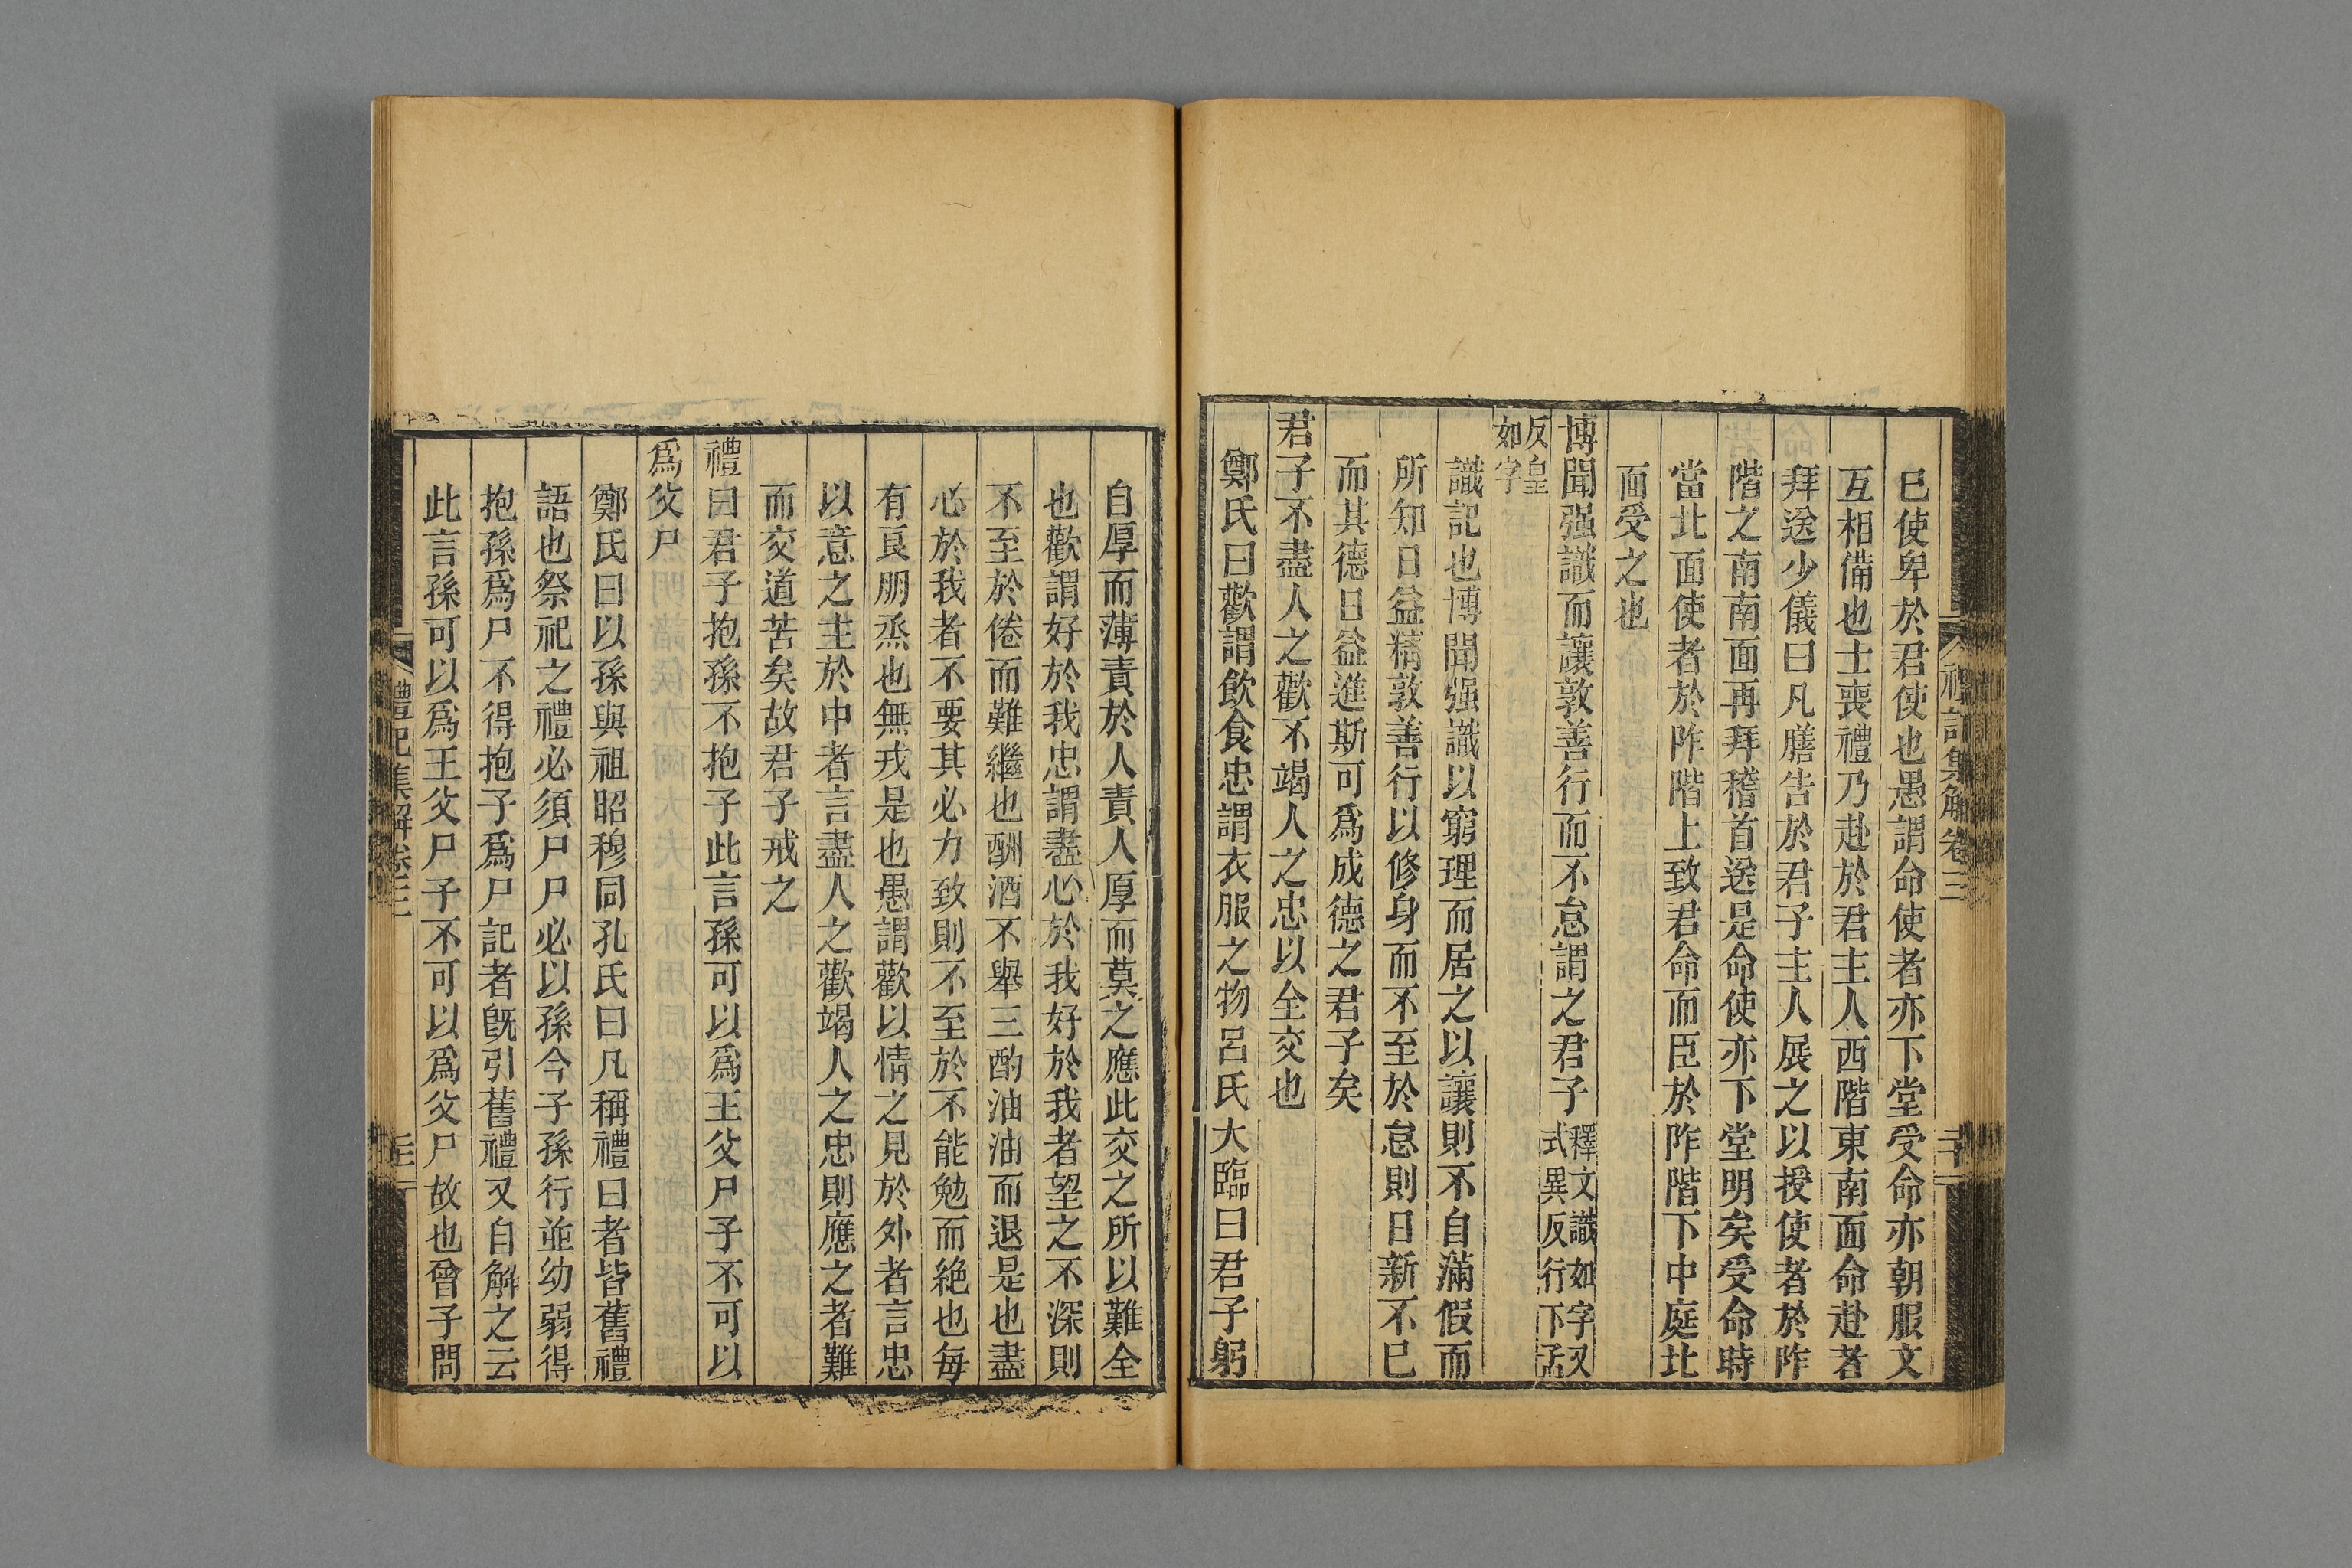 禮記集解卷三 二十
已使卑於君使也愚謂命使者亦下堂受命亦朝服文
互相備也士喪禮乃赴於君主人西階東南面命赴者
拜送少儀曰凡膳告於君子主人展之以授使者於阼
階之南南面再拜稽首送是命使亦下堂明矣受命時
當北面使者於阼階上致君命而臣於阼階下中庭北
面受之也
博聞强識而讓敦善行而不怠謂之君子釋文識如字又式異反行下孟
反皇如字
識記也博聞强識以窮理而居之以讓則不自滿假而
所知日益精敦善行以修身而不至於怠則日新不已
而其德日益進斯可爲成德之君子矣
君子不盡人之歡不竭人之忠以全交也
鄭氏曰歡謂飲食忠謂衣服之物呂氏大臨曰君子躬
自厚而薄責於人責人厚而莫之應此交之所以難全
也歡謂好於我忠謂盡心於我好於我者望之不深則
不至於倦而難繼也酬酒不舉三酌油油而退是也盡
心於我者不要其必力致則不至於不能勉而絶也每
有良朋烝也無戎是也愚謂歡以情之見於外者言忠
以意之主於中者言盡人之歡竭人之忠則應之者難
而交道苦矣故君子戒之
禮曰君子抱孫不抱子此言孫可以爲王父尸子不可以
爲父尸
鄭氏曰以孫與祖昭穆同孔氏曰凡稱禮曰者皆舊禮
語也祭祀之禮必須尸尸必以孫今子孫行並幼弱得
抱孫爲尸不得抱子爲尸記者既引舊禮又自解之云
此言孫可以爲王父尸子不可以爲父尸故也曾子問
禮記集解卷三